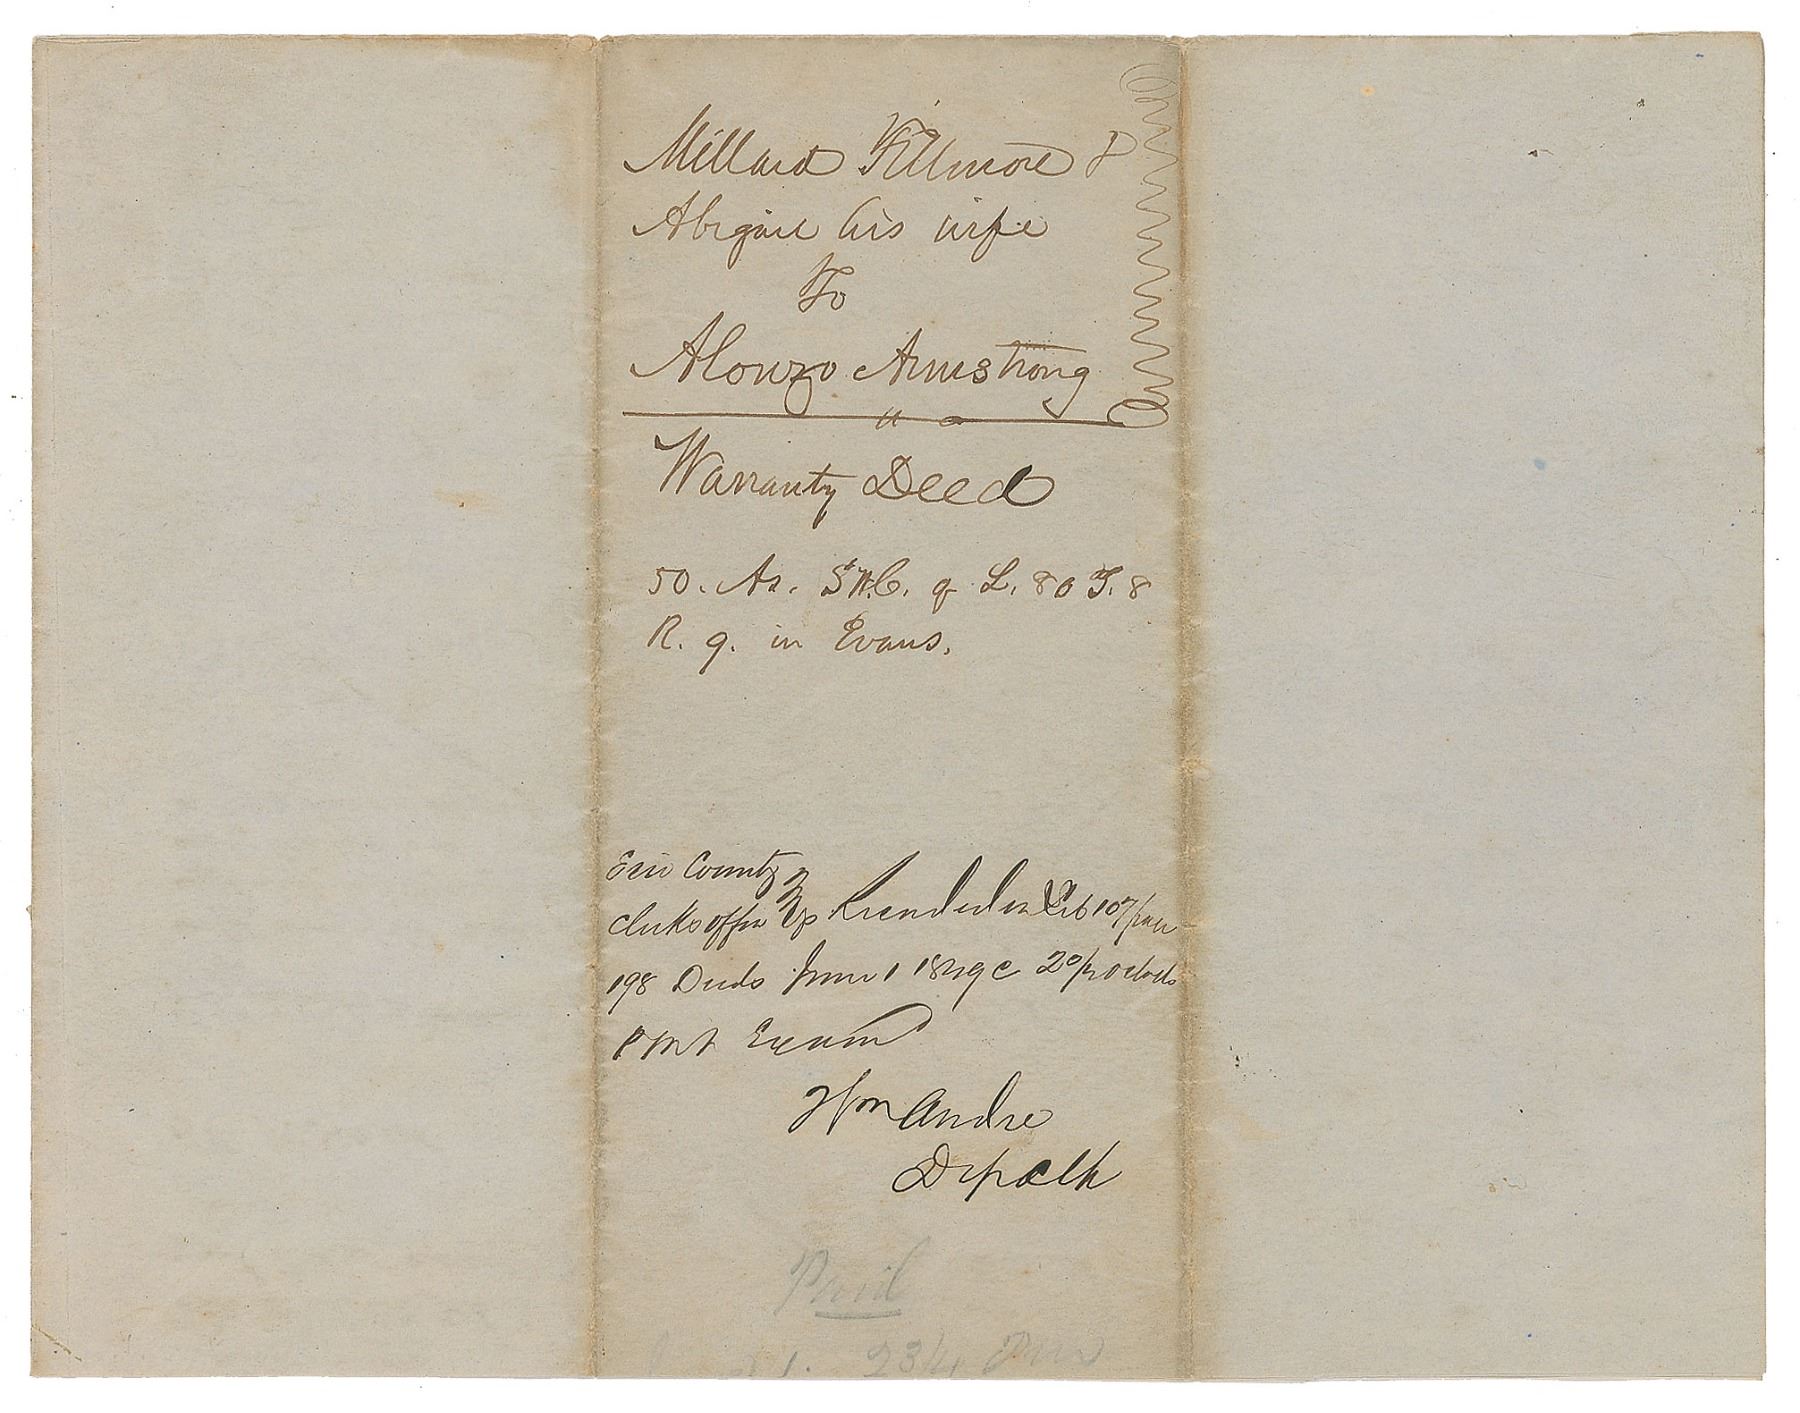 Millard Fillmore &
Abigail his wife
To
Alonzo Armstrong
Warranty Deed
50. As. S.W.C. of L. 80 T. 8
R. 9. in Evans.
Erie County
Clerks office Recorded in Lib 107 page
198 Deeds June 1 1849 @ 2 o'clock
P M & Exam
Wm Andre
Dep Clk
Paid